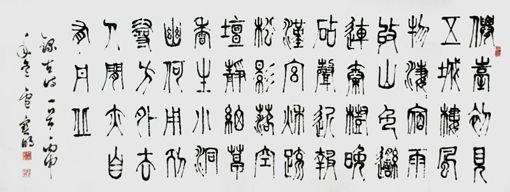 僊臺初見
五城樓風
物淒宿雨
收山色遙
連秦樹晚
砧聲近報
漢宮秌疏
松影落空
壇靜細草
香生小洞
幽何用別
尋方外去
人間亦自
有丹丘
錄古詩一首丙申